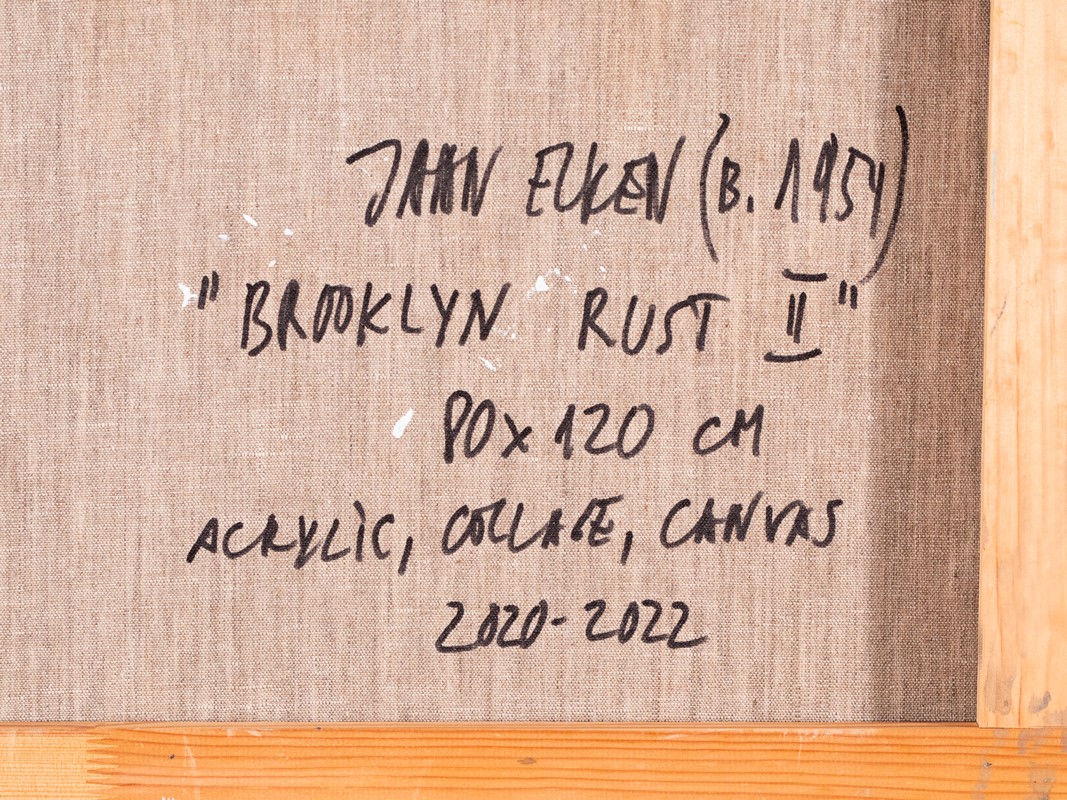 JAAN ELKEN (B. 1954)
"BROOKLYN RUST II"
80 x 120 CM
ACRYLIC, COLLAGE, CANVAS
2020-2022